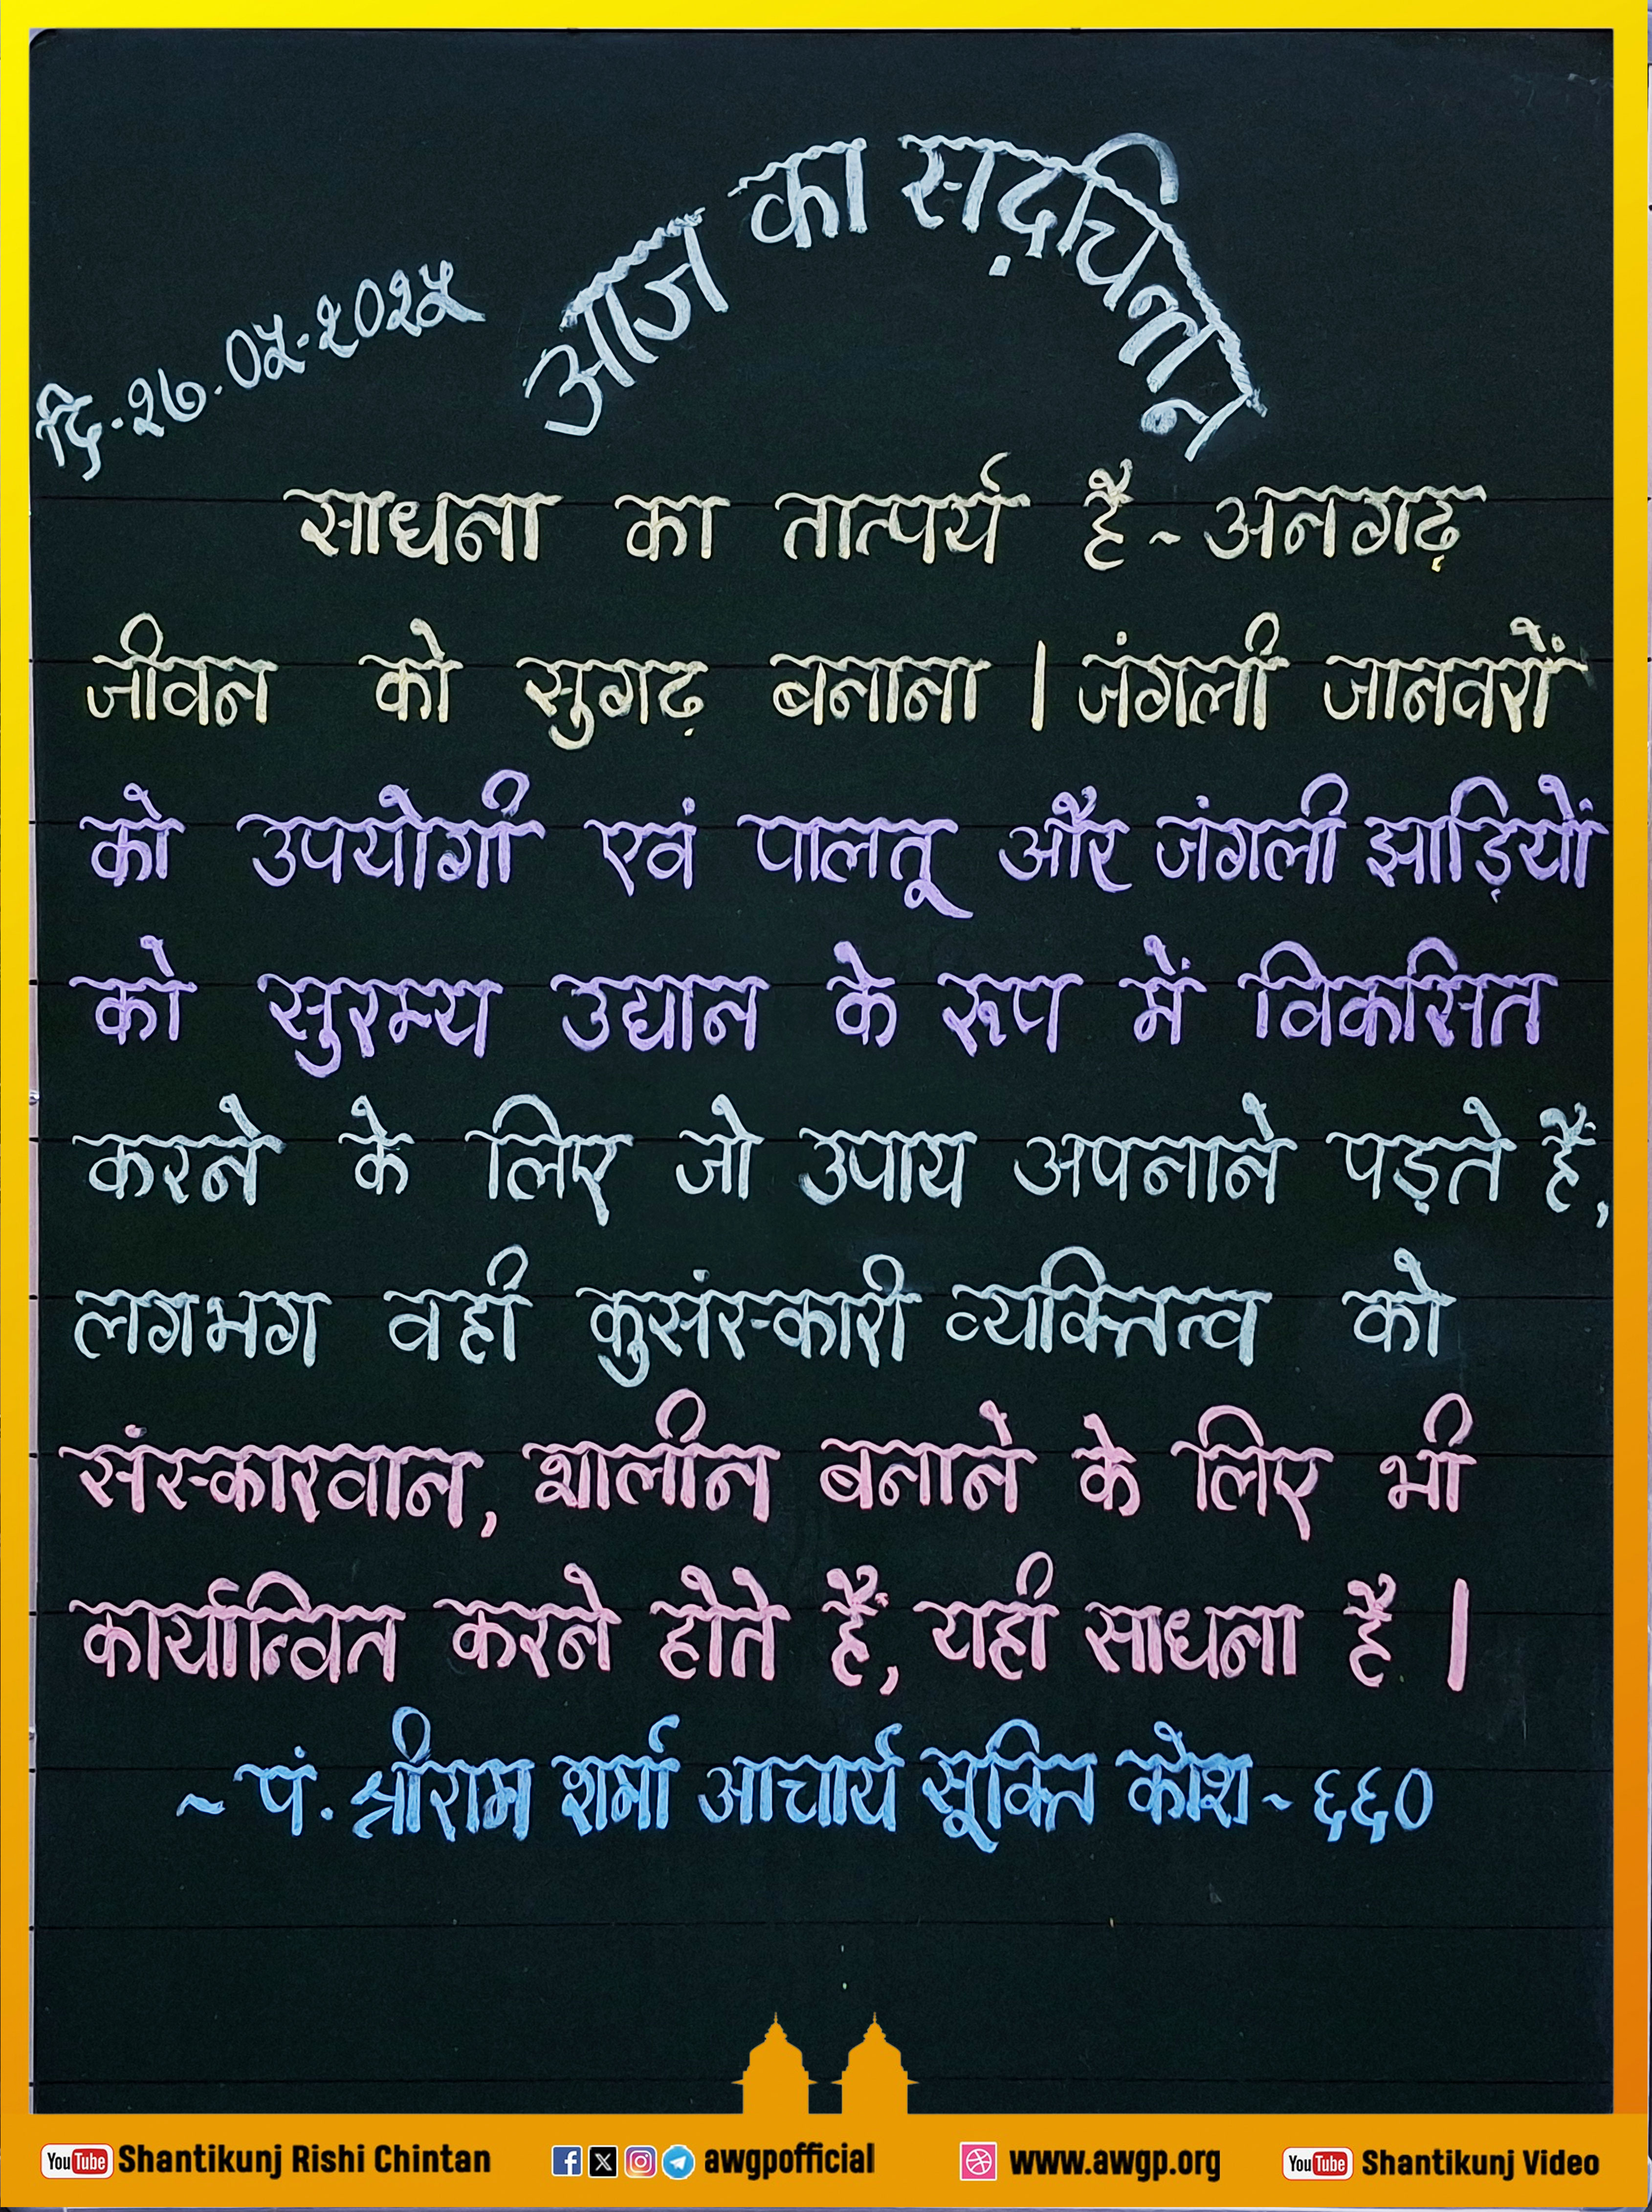 आज का सद्‌चिन्तन
दि.-२७.०५-२०२५
साधना का तात्पर्य है~अनगढ़
जीवन को सुगढ़ बनाना । जंगली जानवरों
को उपयोगी एवं पालतू और जंगली झाड़ियों
को सुरम्य उद्यान के रूप में विकसित
करने के लिए जो उपाय अपनाने पड़ते हैं,
लगभग वही कुसंस्कारी व्यक्तित्व को
संस्कारवान, शालीन बनाने के लिए भी
कार्यान्वित करने होते हैं, यही साधना है ।
~ पं. श्रीराम शर्मा आचार्य सूक्ति कोश ~ ६६०
YouTube Shantikunj Rishi Chintan awgpofficial www.awgp.org YouTube Shantikunj Video